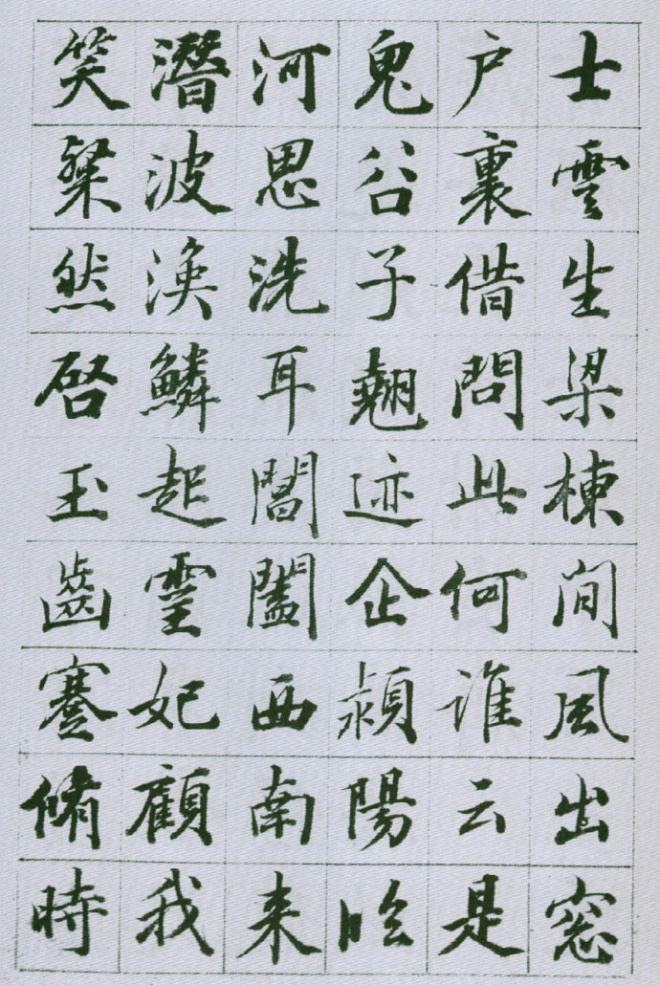 士雲生梁棟間風出窓
户裏借問此何誰云是
鬼谷子翹迹企潁陽臨
河思洗耳閶闔西南来
潛波渙鱗起靈妃顧我
笑粲然启玉齒蹇脩時